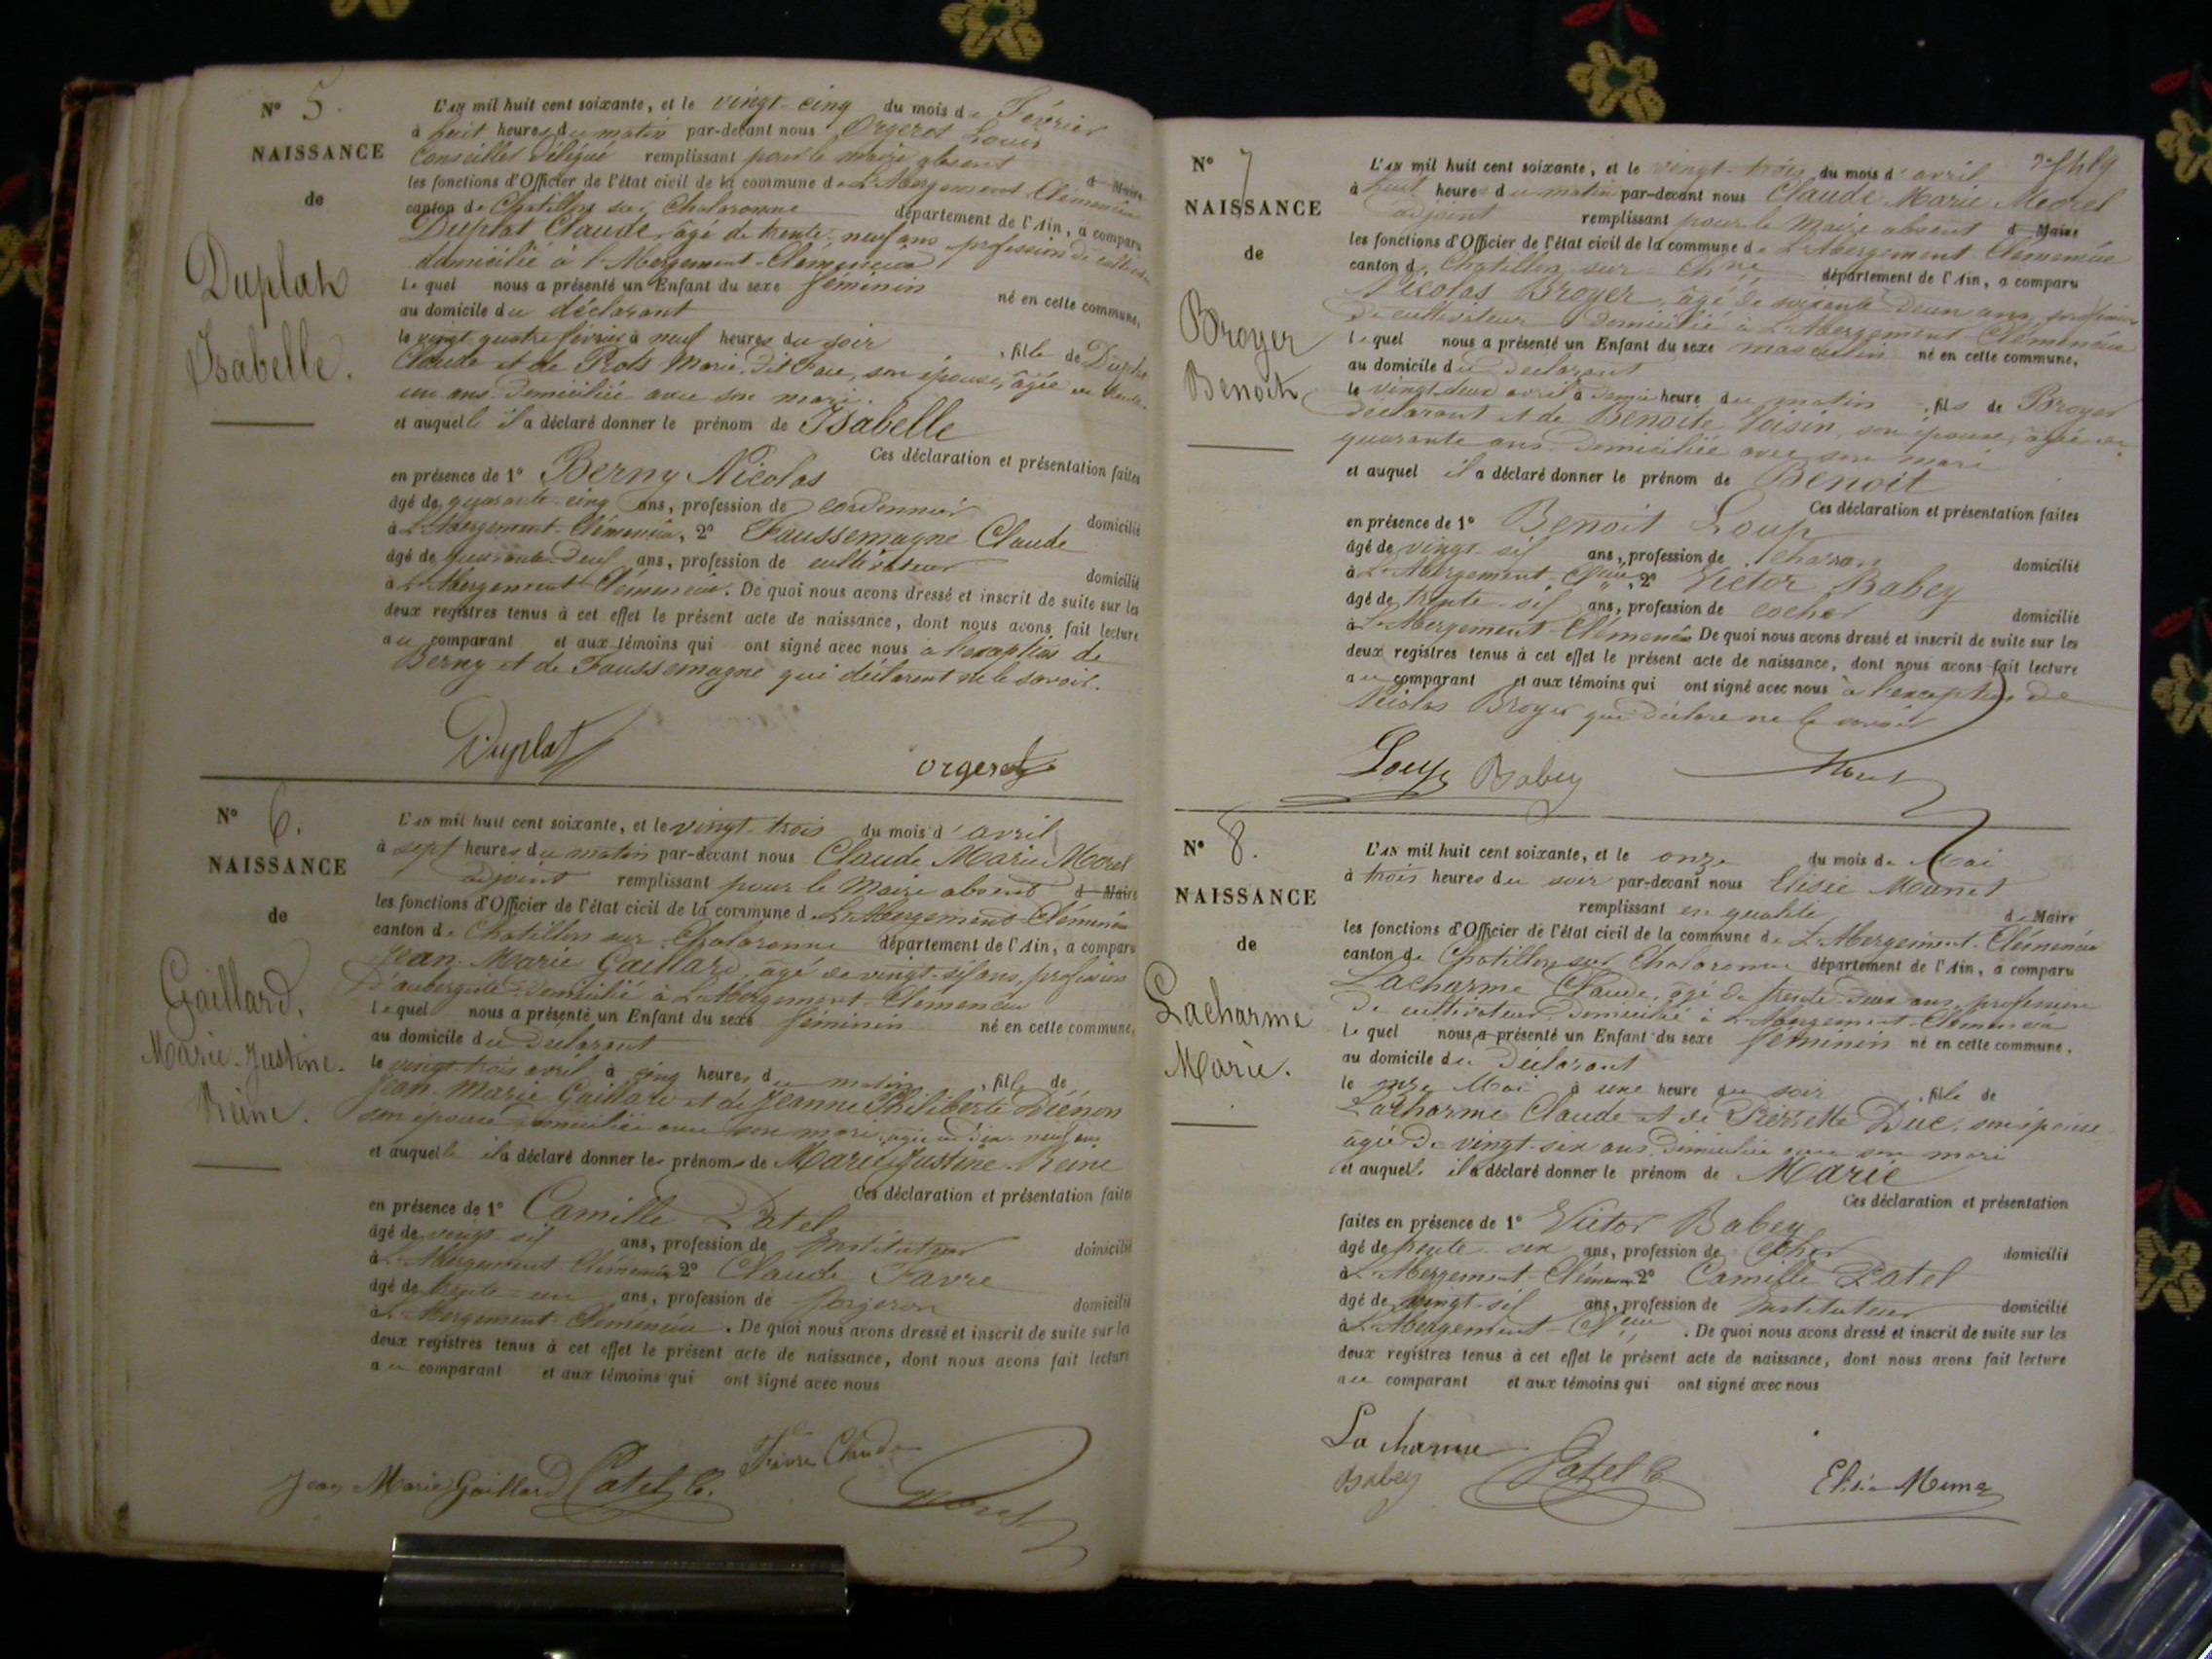 N° 5.
NAISSANCE
de
Duplat
Isabelle.
L'AN mil huit cent soixante, et le vingt-cinq du mois de Février
à huit heures du matin par-devant nous Orgeret Louis
Conseiller délégué remplissant pour le maire absent d Maire
les fonctions d'Officier de l'état civil de la commune de L'Abergement-Clémencia
canton de Chatillon sur Chalaronne département de l'Ain, a comparu
Duplat Claude, âgé de trente-neuf ans profession de cultivateur
domicilié à l'Abergement-Clemencia
lequel nous a présenté un Enfant du sexe féminin né en cette commune,
au domicile du déclarant
le vingt quatre février à neuf heures du soir, fille de Duplat
Claude et de Marie, son épouse, âgée de
un ans domiciliée avec son mari.
et auquelle il a déclaré donner le prénom de Isabelle
Ces déclaration et présentation faites
en présence de 1° Berny Nicolas
âgé de quarante-cinq ans, profession de cordonnier domicilié
à L'Abergement-Clémencia, 2° Faussemagne Claude
âgé de quarante-deux ans, profession de cultivateur domicilié
à L'Abergement-Clémencia. De quoi nous avons dressé et inscrit de suite sur les
deux registres tenus à cet effet le présent acte de naissance, dont nous avons fait lecture
au comparant et aux témoins qui ont signé avec nous à l'exception de
Berny et de Faussemagne qui déclarent ne le savoir.
Duplat Orgeret
N° 6.
NAISSANCE
de
Gaillard,
Marie-Justine-
Reine.
L'AN mil huit cent soixante, et le vingt-trois du mois d'avril
à sept heures du matin par-devant nous Claude Marie Morel
adjoint remplissant pour le Maire absent d Maire
les fonctions d'Officier de l'état civil de la commune de L'Abergement-Clémencia
canton de Chatillon sur Chalaronne département de l'Ain, a comparu
Jean-Marie Gaillard, âgé de vingt-six ans, profession
d'aubergiste domicilié à L'Abergement-Clemencia
lequel nous a présenté un Enfant du sexe féminin né en cette commune,
au domicile du Déclarant
le vingt trois avril à cinq heures du matin, fille de
Jean-Marie Gaillard et de Jeanne Philiberte Diénon
son épouse domiciliée avec son mari, âgée de dix-neuf ans
et auquelle il a déclaré donner les prénoms de Marie Justine-Reine
Ces déclaration et présentation faites
en présence de 1° Camille Patel
âgé de vingt-six ans, profession de Instituteur domicilié
à L'Abergement-Clémencia 2° Claude Favre
âgé de trente-un ans, profession de forgeron domicilié
à L'Abergement-Clemencia. De quoi nous avons dressé et inscrit de suite sur les
deux registres tenus à cet effet le présent acte de naissance, dont nous avons fait lecture
au comparant et aux témoins qui ont signé avec nous
Jean Marie Gaillard Patel C. Favre Claude Morel
N° 7
NAISSANCE
de
Broyer
Benoit
L'AN mil huit cent soixante, et le vingt-trois du mois d'avril
à huit heures du matin par-devant nous Claude-Marie Morel
adjoint remplissant pour le Maire absent d Maire
les fonctions d'Officier de l'état civil de la commune de L'Abergement-Clémencia
canton de Chatillon sur Chne département de l'Ain, a comparu
Nicolas Broyer, âgé de soixante-deux ans, profession
de cultivateur domicilié à L'Abergement-Clémencia
lequel nous a présenté un Enfant du sexe masculin né en cette commune,
au domicile du Déclarant
le vingt-deux avril à demie heure du matin, fils de Broyer
déclarant et de Benoite Voisin, son épouse, âgée de
quarante ans domiciliée avec son mari
et auquel il a déclaré donner le prénom de Benoit
Ces déclaration et présentation faites
en présence de 1° Benoit Loup
âgé de vingt-six ans, profession de charron domicilié
à L'Abergement-Clcia 2° Victor Babey
âgé de trente-six ans, profession de cocher domicilié
à L'Abergement-Clémencia De quoi nous avons dressé et inscrit de suite sur les
deux registres tenus à cet effet le présent acte de naissance, dont nous avons fait lecture
au comparant et aux témoins qui ont signé avec nous à l'exception de
Nicolas Broyer qui déclare ne le savoir
Loup Babey Morel
N° 8.
NAISSANCE
de
Lacharme
Marie.
L'AN mil huit cent soixante, et le onze du mois de Mai
à trois heures du soir par-devant nous Elisée Munet
remplissant en qualité de Maire
les fonctions d'Officier de l'état civil de la commune de L'Abergement-Clémencia
canton de Chatillon sur Chalaronne département de l'Ain, a comparu
Lacharme Claude, âgé de trente-deux ans, profession
de cultivateur domicilié à L'Abergement-Clémencia
lequel nous a présenté un Enfant du sexe féminin né en cette commune,
au domicile du Déclarant
le onze Mai à une heure du soir, fille de
Lacharme Claude et de Pierrette Duc, son épouse
âgée de vingt-six ans domiciliée avec son mari
et auquelle il a déclaré donner le prénom de Marie
Ces déclaration et présentation
faites en présence de 1° Victor Babey
âgé de trente-six ans, profession de Cocher domicilié
à L'Abergement-Clémencia 2° Camille Patel
âgé de vingt-six ans, profession de Instituteur domicilié
à L'Abergement-Clcia. De quoi nous avons dressé et inscrit de suite sur les
deux registres tenus à cet effet le présent acte de naissance, dont nous avons fait lecture
au comparant et aux témoins qui ont signé avec nous
La charme
Babey Patel C. Elisée Munet